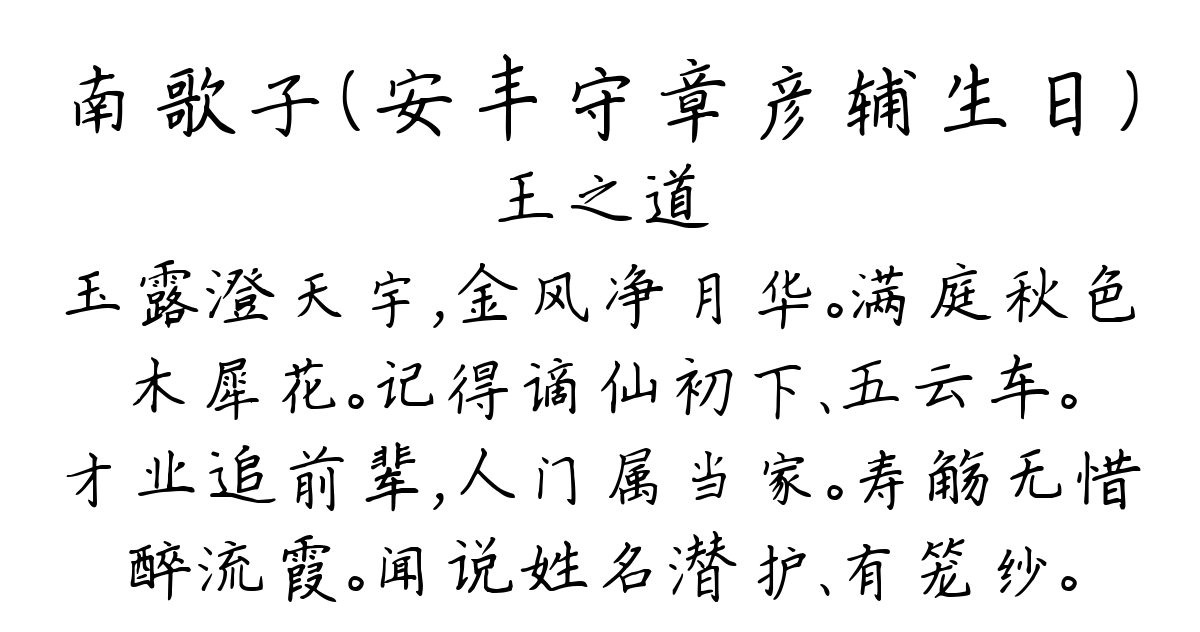 南歌子(安丰守章彦辅生日)
王之道
玉露澄天宇,金风净月华。满庭秋色
木犀花。记得谪仙初下、五云车。
才业追前辈,人门属当家。寿觞无惜
醉流霞。闻说姓名潜护、有笼纱。